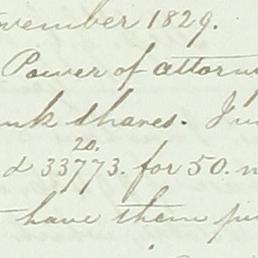 vember 1829.
Power of attorn
nk shares. Ju
20.
d 33773. for 50.
have them